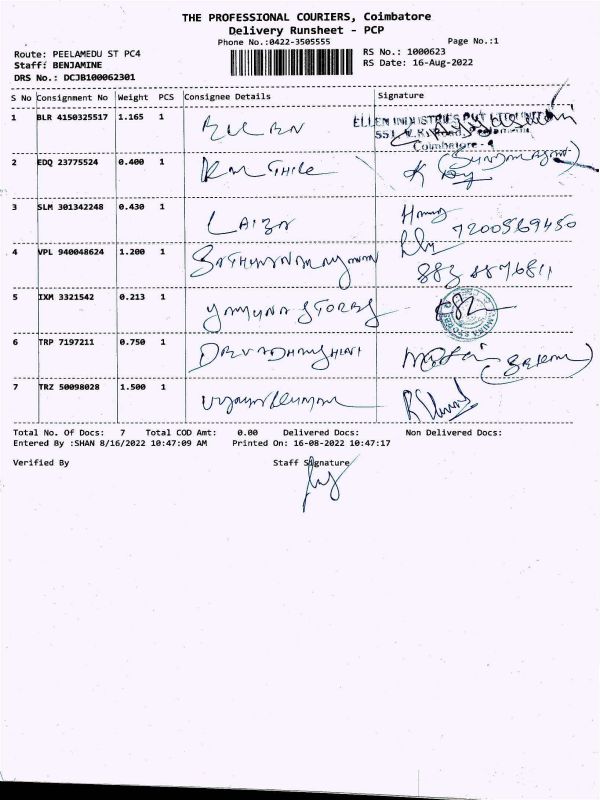 THE PROFESSIONAL COURIERS, Coimbatore
Delivery Runsheet - PCP
Phone No.:0422-3505555
Page No.:1
Route: PEELAMEDU ST PC4
RS No.: 1000623
Staff: BENJAMINE
RS Date: 16-Aug-2022
DRS No.: DCJB100062301
S No Consignment No Weight PCS Consignee Details Signature
1 BLR 4150325517 1.165 1 ELLEN
ELLEN INDUSTRIES PVT LIMITED
Coimbatore - 4
2 EDQ 23775524 0.400 1
3 SLM 301342248 0.430 1 LAIZA
7200569450
4 VPL 940048624 1.200 1 SATHIYANARAYANAN
5 IXM 3321542 0.213 1 YAMUNA STORES
6 TRP 7197211 0.750 1
7 TRZ 50098028 1.500 1
Total No. Of Docs: 7 Total COD Amt: 0.00 Delivered Docs: Non Delivered Docs:
Entered By :SHAN 8/16/2022 10:47:09 AM Printed On: 16-08-2022 10:47:17
Verified By Staff Signature